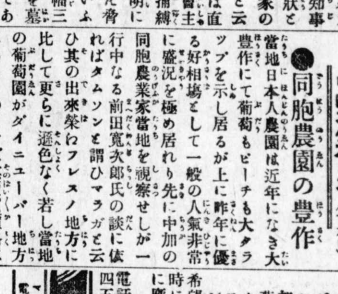 知事
狀と
家の
は直
と云
捕縛
明に
た脅
幅三
●同胞農園の豊作
當地日本人農園は近年になき大
豊作にて葡萄もピーチも大タラ
ップを示し居るが上に昨年に優
る好相塲として一般の人氣非常
に盛况を極め居れり先に中加の
同胞農業家當地を視察せしが一
行中なる前田寛次郎氏の談に依
ればタムソンと謂ひマラガと云
ひ其の出來榮はフレスノ地方に
比して更らに遜色なく若し當地
の葡萄園がダイニユーバー地方
希望
時に
電話
四五